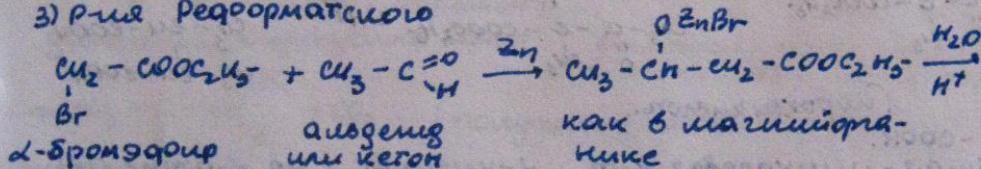 3) Р-ия Реформатского
OZnBr
CH₂ - COOC₂H₅ + CH₃ - C =O H Zn → CH₃ - CH - CH₂ - COOC₂H₅ H₂O H⁺ →
Br
α-бромэфир альдегид или кетон как в магнийорга-
нике